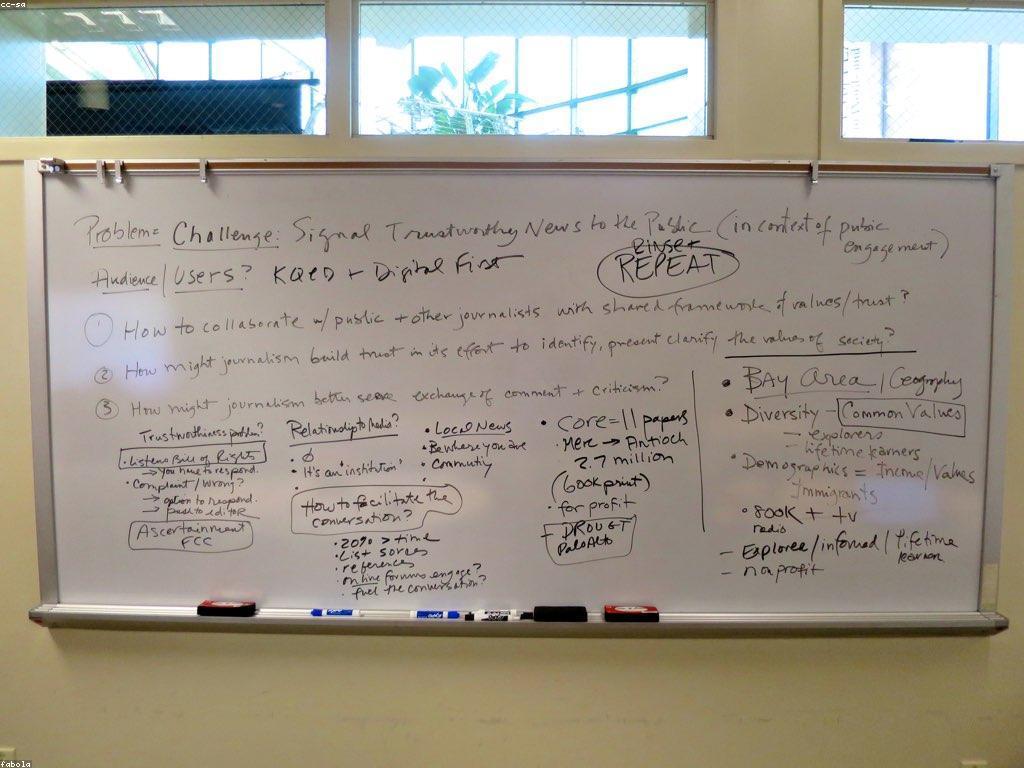 cc-sa
Problem= Challenge: Signal Trustworthy News to the Public (in context of public
engagement)
Rinse +
REPEAT
Audience / Users? KQED + Digital First
1 How to collaborate w/ public + other journalists with shared framework of values/trust?
2 How might journalism build trust in its effort to identify, present clarify the values of society?
3 How might journalism better serve exchange of comment + criticism?
Trustworthiness problem?
• Listeners Bill of Rights
→ you have to respond.
• Complaint / wrong?
→ option to respond.
→ push to editor
Ascertainment
FCC
Relationship to Media?
• Ø
• It's an 'institution'
•
How to facilitate the
conversation?
• 20% > time
• List sources
• references
• online forums engage?
• fuel the conversation?
• Local News
• Be where you are
• Community
• Core = 11 papers
• Mere → Antioch
2.7 million
(600k print)
• for profit
– DROUGT
Palo Alto
• BAY Area / Geography
• Diversity – Common Values
– explorers
– lifetime learners
• Demographics = Income/Values
Immigrants
• 800K + tv
radio
– Exploree/informed / Lifetime
learner
– nonprofit
fabola